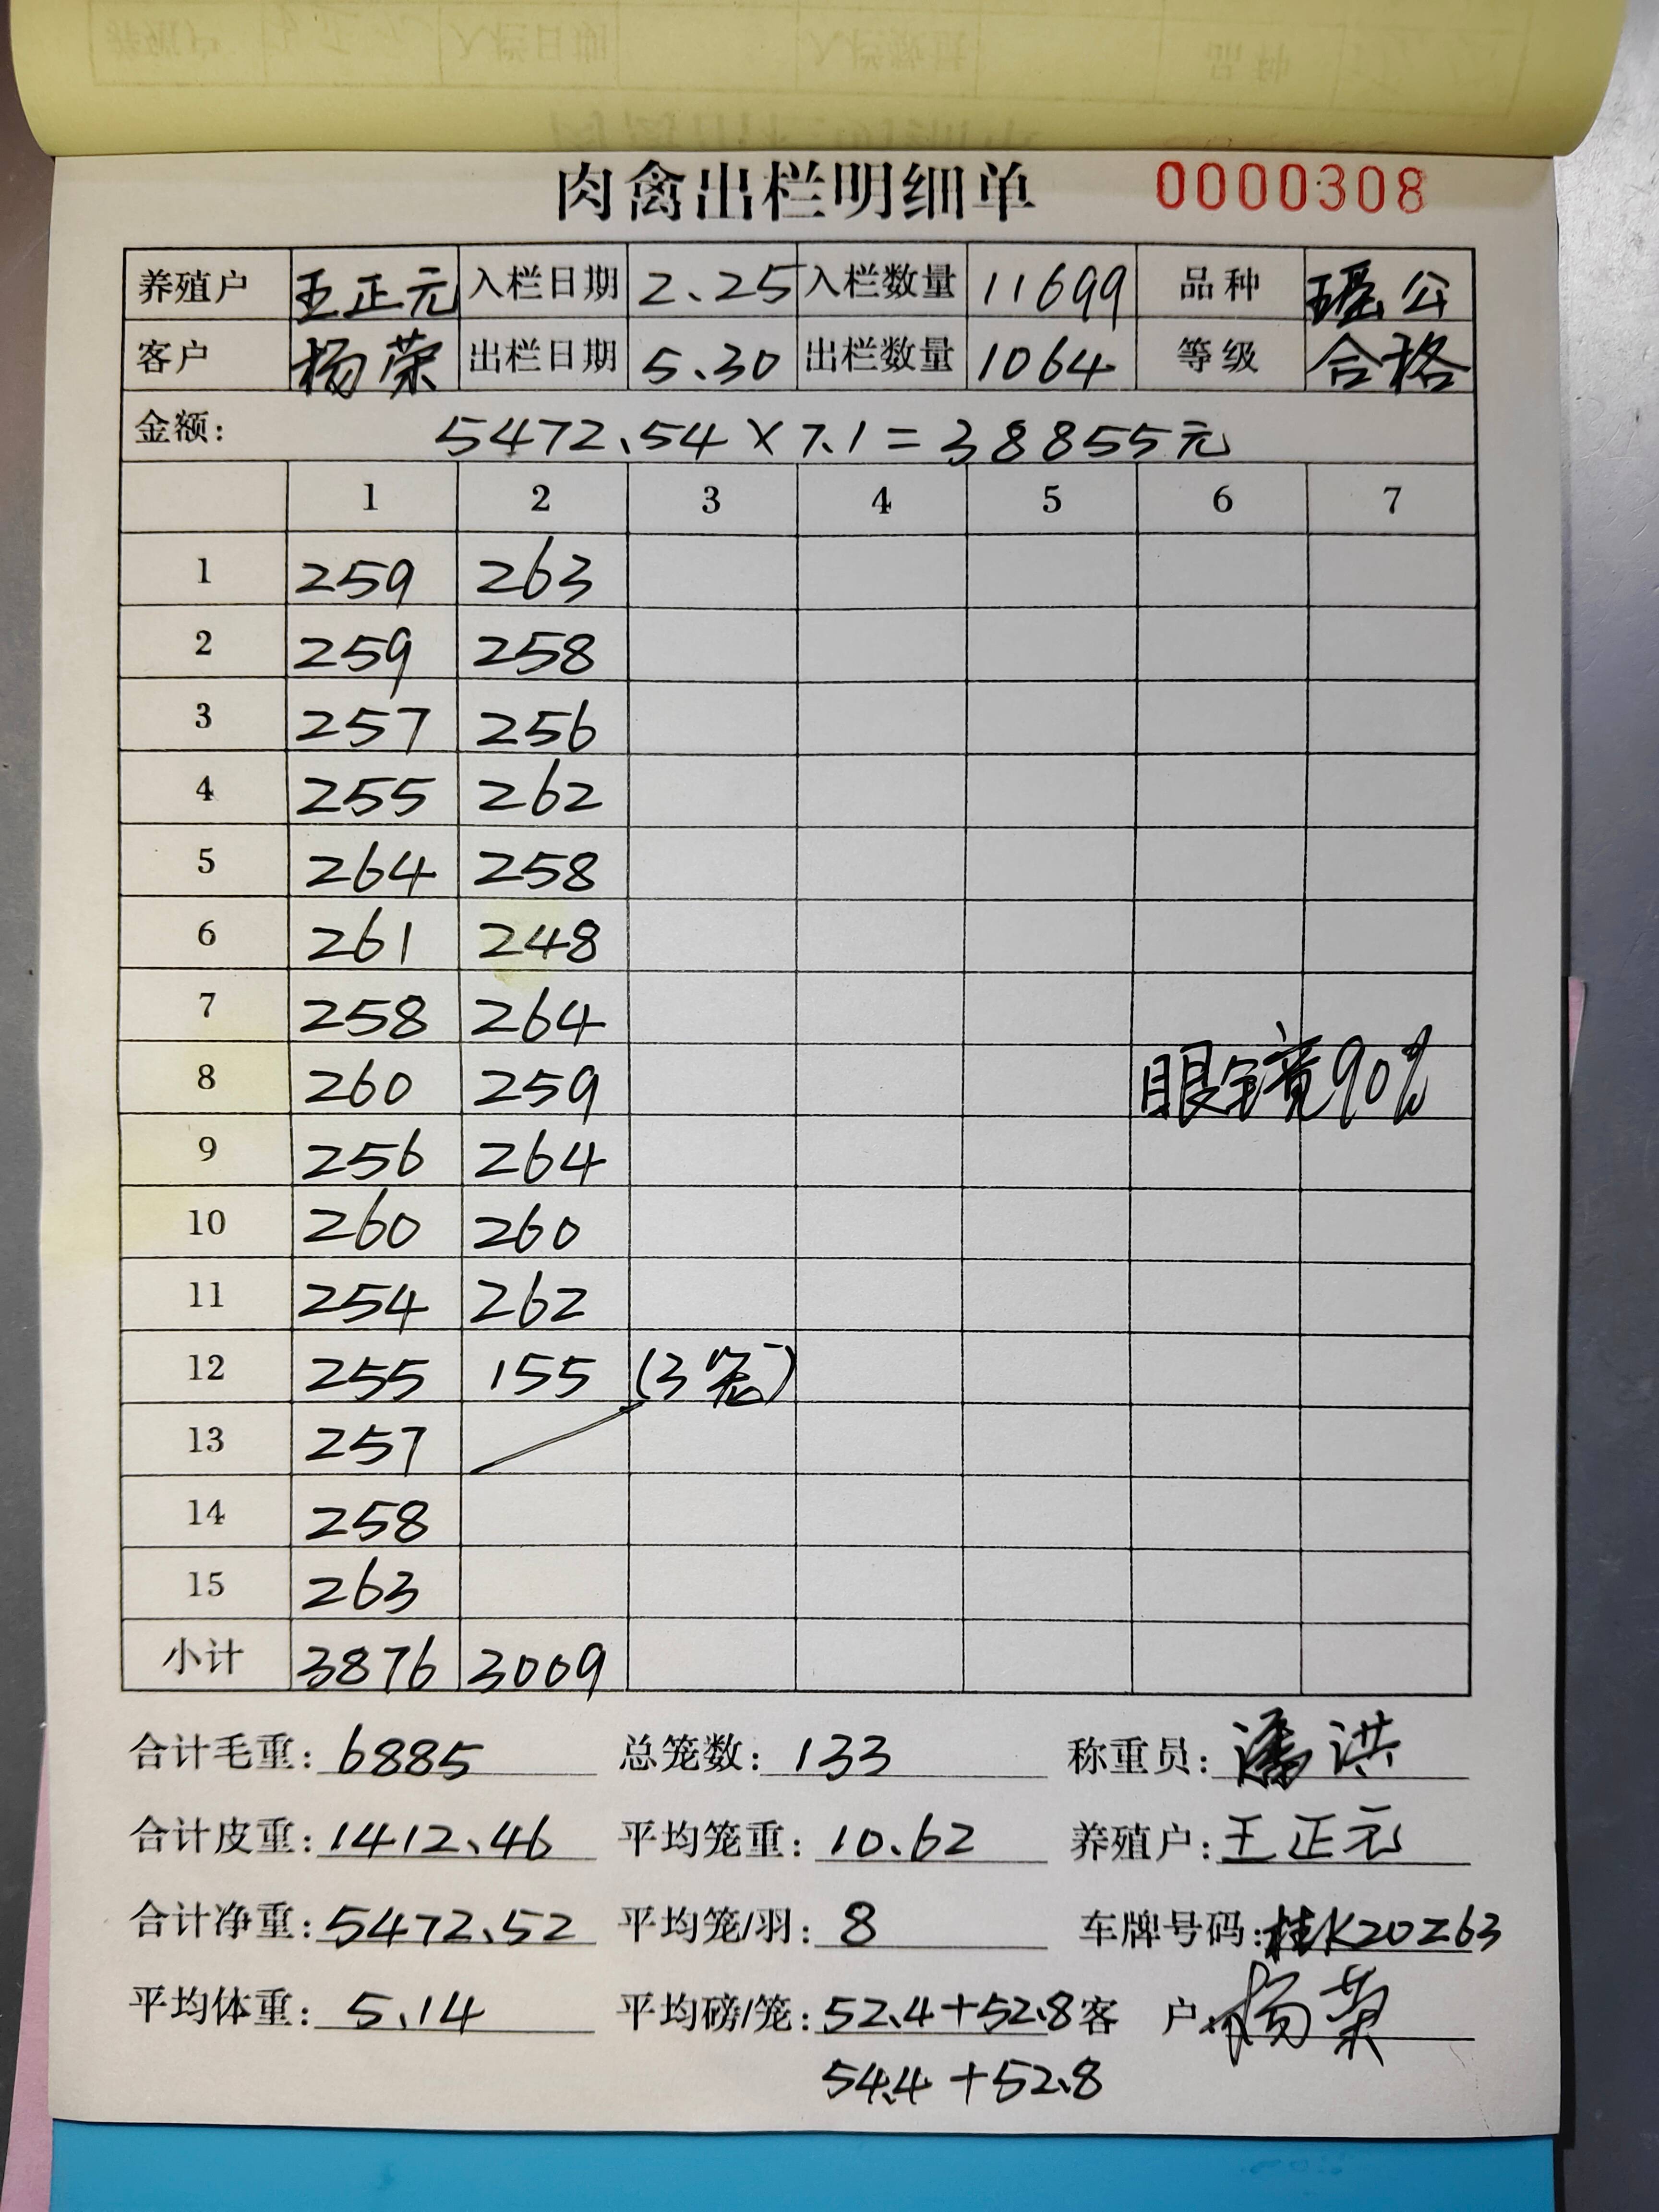 肉禽出栏明细单 0000308
养殖户 王正元 入栏日期 2.25 入栏数量 11699 品种 瑶公
客户 杨荣 出栏日期 5.30 出栏数量 1064 等级 合格
金额: 5472.54×7.1=38855元
1 2 3 4 5 6 7
1 259 263
2 259 258
3 257 256
4 255 262
5 264 258
6 261 248
7 258 264
8 260 259 眼镜90%
9 256 264
10 260 260
11 254 262
12 255 155 (3笼)
13 257
14 258
15 263
小计 3876 3009
合计毛重: 6885 总笼数: 133 称重员: 潘洪
合计皮重: 1412.46 平均笼重: 10.62 养殖户: 王正元
合计净重: 5472.52 平均笼/羽: 8 车牌号码: 桂K20Z63
平均体重: 5.14 平均磅/笼: 52.4+52.8 客户: 杨荣
54.4+52.8